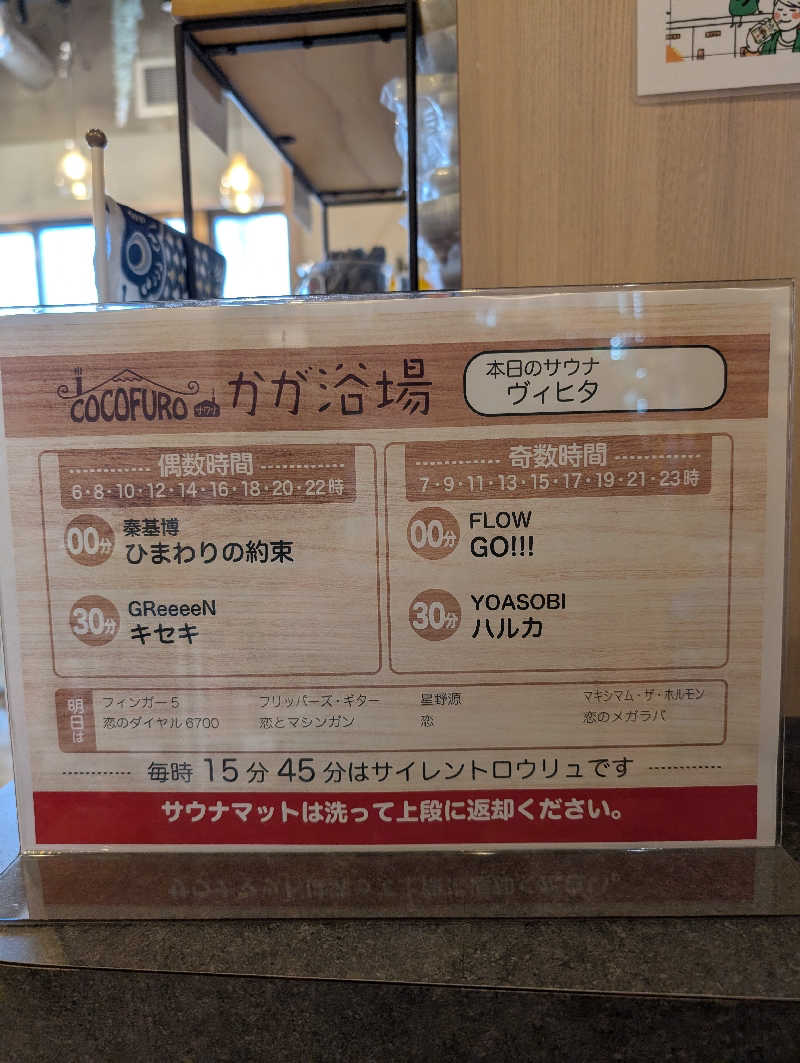 COCOFURO サウナ かが浴場
本日のサウナ
ヴィヒタ
偶数時間
6・8・10・12・14・16・18・20・22時
00分 秦基博
ひまわりの約束
30分 GReeeeN
キセキ
奇数時間
7・9・11・13・15・17・19・21・23時
00分 FLOW
GO!!!
30分 YOASOBI
ハルカ
明日は
フィンガー5
恋のダイヤル6700
フリッパーズ・ギター
恋とマシンガン
星野源
恋
マキシマム・ザ・ホルモン
恋のメガラバ
毎時 15分 45分はサイレントロウリュです
サウナマットは洗って上段に返却ください。